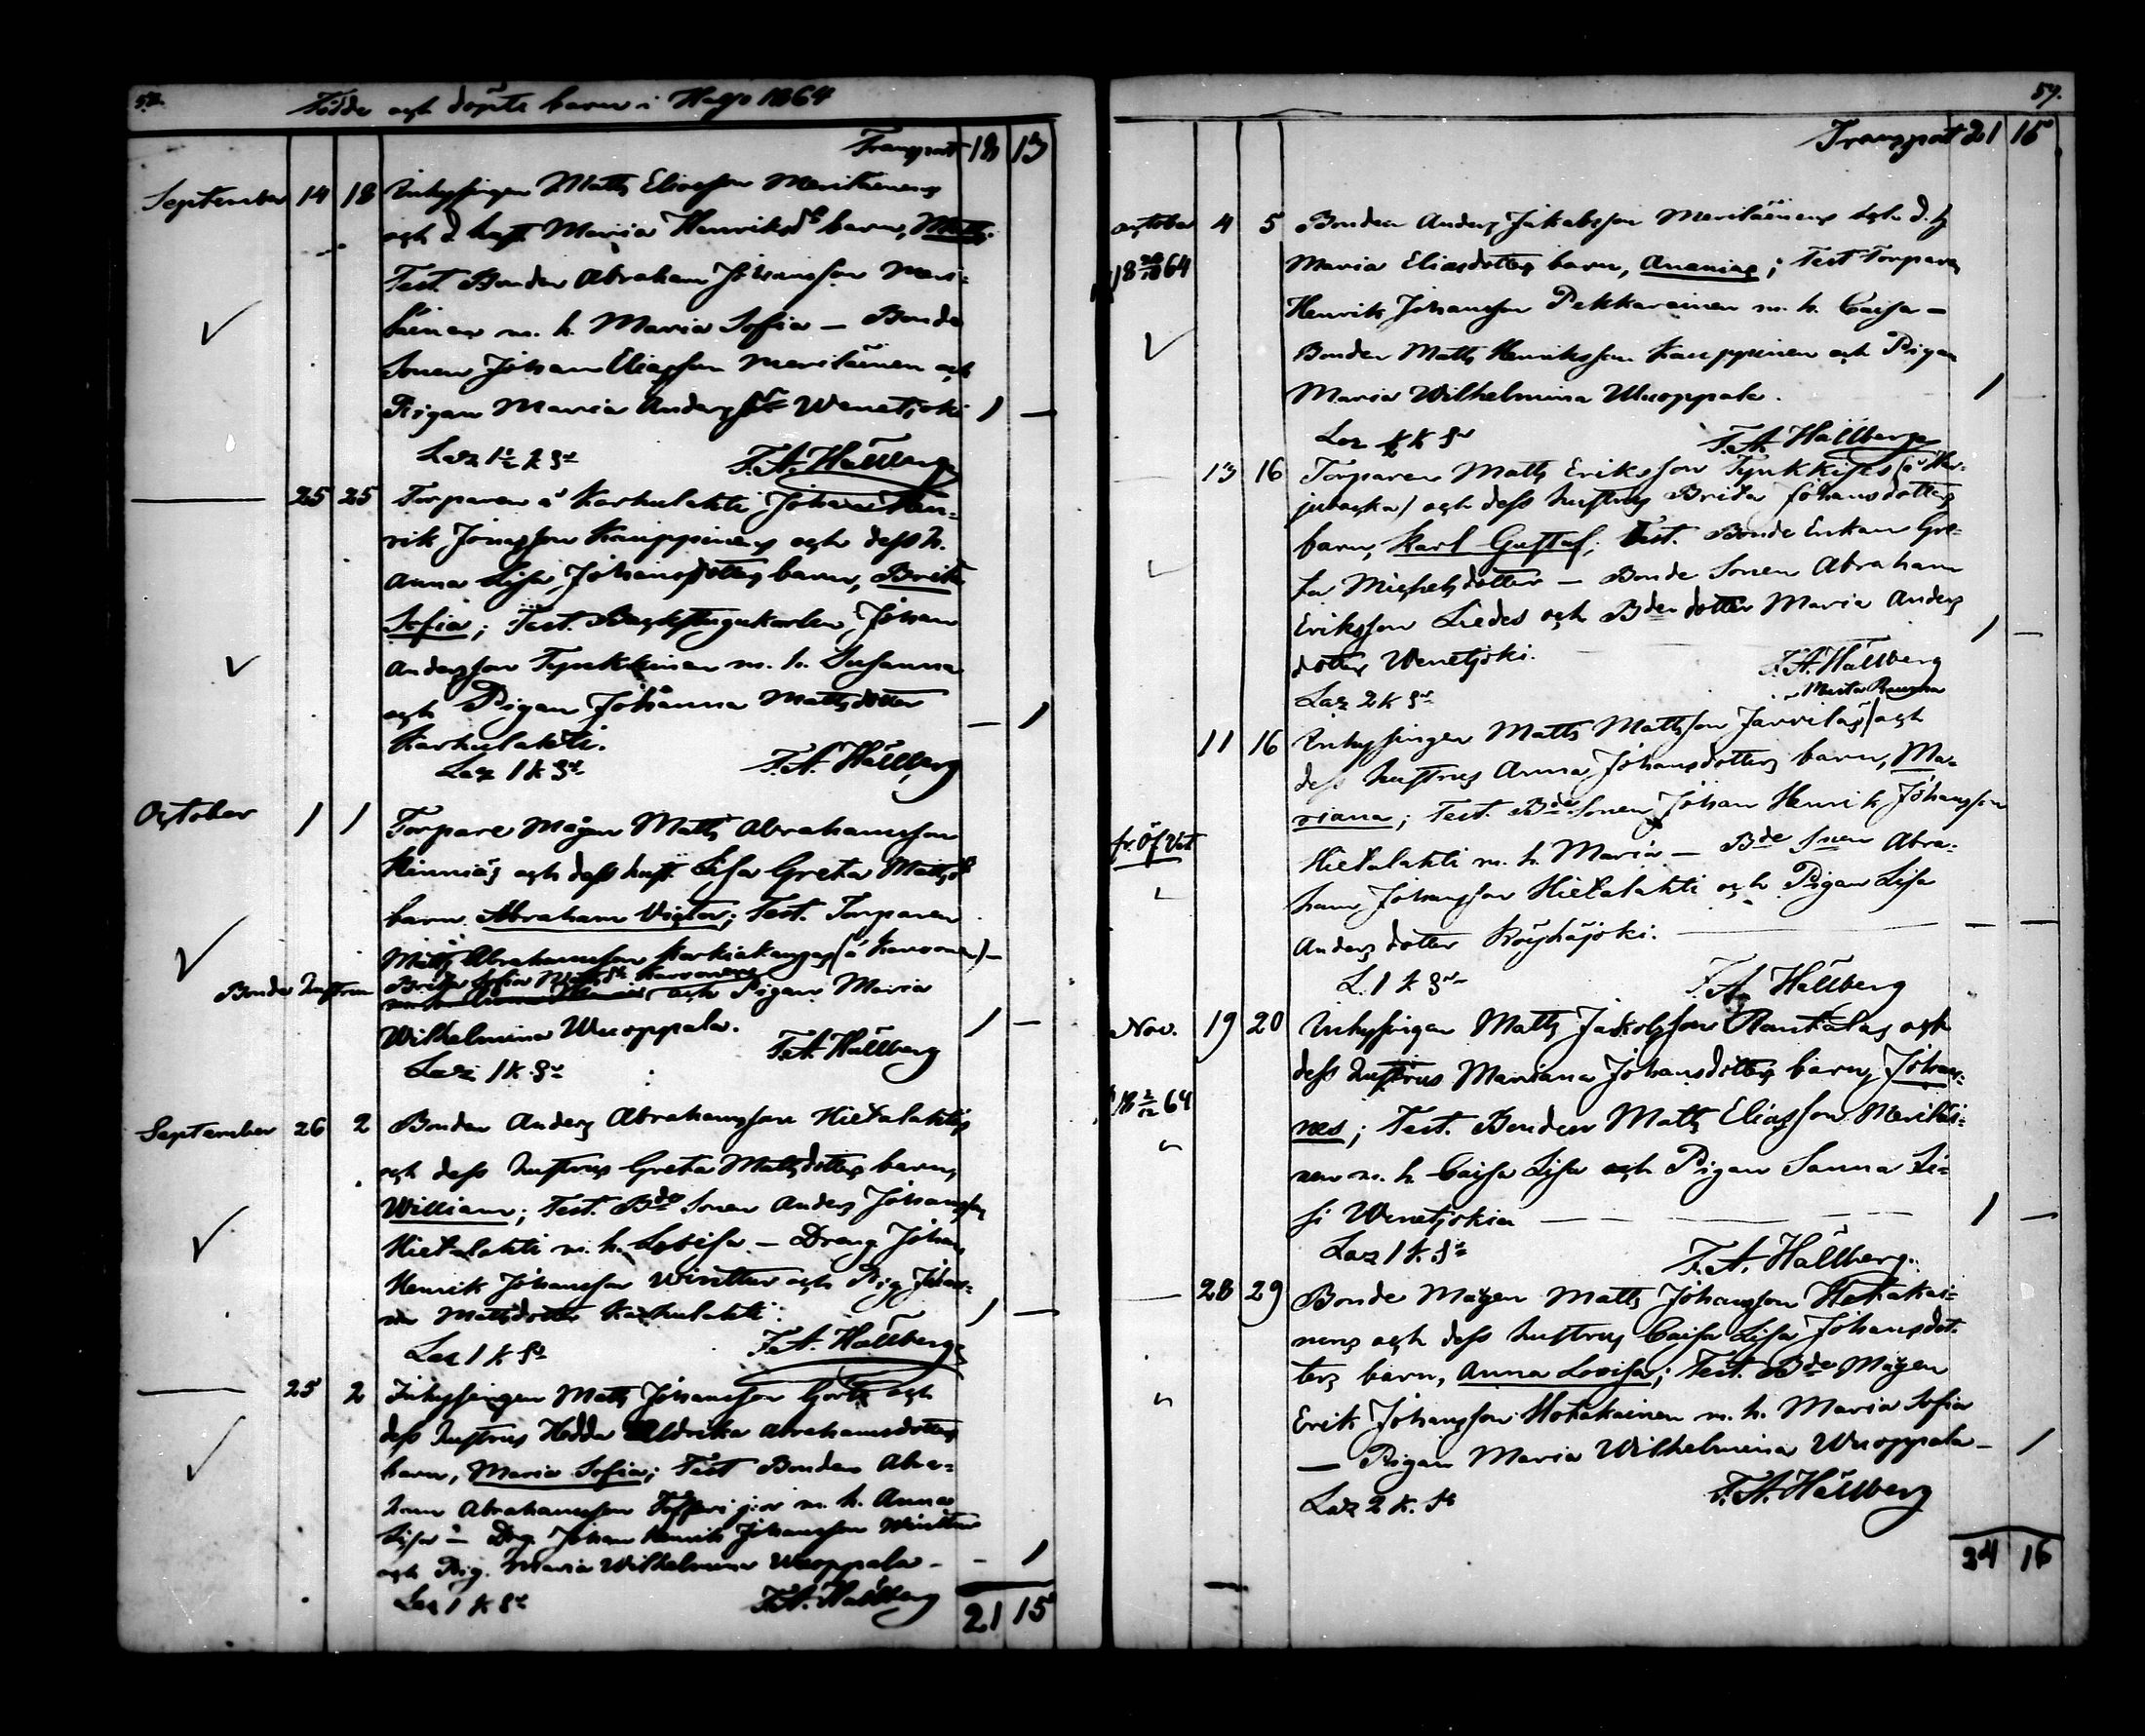 58.
Födde och döpte barn i Halso 1864
Transport 18 13
September 14 18 Inhysingen Matts Eliasson Meriläinens
och d. hust. Maria Henriksdr barn, Matts.
Test. Bonden Abraham Johansson Meri-
läinen m. h. Maria Sofia — Bonde
Sonen Johan Eliasson Meriläinen och
Pigan Maria Andersdr Wenetjoki 1 —
F. A. Hällberg
25 25 Torparen å Karhulahti Johan Hen-
rik Jonasson Kauppinens och dess h.
Anna Lisa Johansdotters barn, Brita
Sofia; Test. Johan
Andersson Tynkkinen m. h. Susanna
och Pigan Johanna Mattsdotter — 1
Karhulahti.
F. A. Hällberg
October 1 1 Torpare Mågen Matts Abrahamsson
och dess hust. Lisa Greta Mattsdr
barn Abraham Victor; Test. Torparen
Matts Abrahamsson
Bonde hustrun Brita Sofia och Pigan Maria
Wilhelmina Wuoppala. 1 —
F. A. Hällberg
September 26 2 Bonden Anders Abrahamsson Hietalahtis
och dess hustrus Greta Mattsdotters barn,
William; Test. Bde Sonen Anders Johansson
Hietalahti m. h. Lovisa — Dreng Johan
Henrik Johansson Wintter och Pig Johan-
na Mattsdotter Karhulahti. 1 —
F. A. Hällberg
25 2 Inhysingen Matts Johansson och
dess hustrus Hedda Uldrika Abrahamsdotters
barn, Maria Sofia; Test Bonden Abra-
ham Abrahamsson m. h. Anna
Lisa — Drg. Johan Henrik Johansson Wintter
och Pig. Maria Wilhelmina Wuoppala — - 1
F. A. Hällberg
21 15
59.
Transport 21 15
October 4 5 Bonden Anders Jakobsson Meriläinens och d. h
Maria Eliasdotters barn, Ananias; Test Torparen
Henrik Johansson Pekkarainen m. h. Caisa —
Bonden Matts Henriksson Kauppinen och Pigan
Maria Wilhelmina Wuoppala. 1
F. A. Hällberg
13 16 Torparen Matts Eriksson Tynkkises
och dess hustrus Brita Johansdotters
barn, Karl Gustaf; Test. Bonde Enkan Gre-
ta Michelsdotter — Bonde Sonen Abraham
Eriksson Liedes och Bdedotter Maria Anders
dotter Wenetjoki. 1 —
F. A. Hällberg
11 16 Inhysingen Matts Mattsson Järviläs och
dess hustrus Anna Johansdotters barn, Ma-
riana; Test. Bde Sonen Johan Henrik Johansson
Hietalahti m. h. Maria — Bde Sonen Abra-
ham Johansson Hietalahti och Pigan Lisa
Anders dotter Köyhäjoki. — —
F. A. Hällberg
Nov. 19 20 Inhysingen Matts Jakobsson Rantalas och
dess hustrus Mariana Johansdotters barn, Johan-
nes; Test. Bonden Matts Eliasson Meriläi-
nen m. h. Caisa Lisa och Pigan Sanna
Wenetjokia 1 —
F. A. Hällberg.
28 29 Bonde Mågen Matts Johansson Hotakai-
nens och dess hustrus Caisa Lisa Johansdot-
ters barn, Anna Lovisa; Test. Bde Mågen
Erik Johansson Hotakainen m. h. Maria Sofia
— Pigan Maria Wilhelmina Wuoppala — 1
F. A. Hällberg
24 16